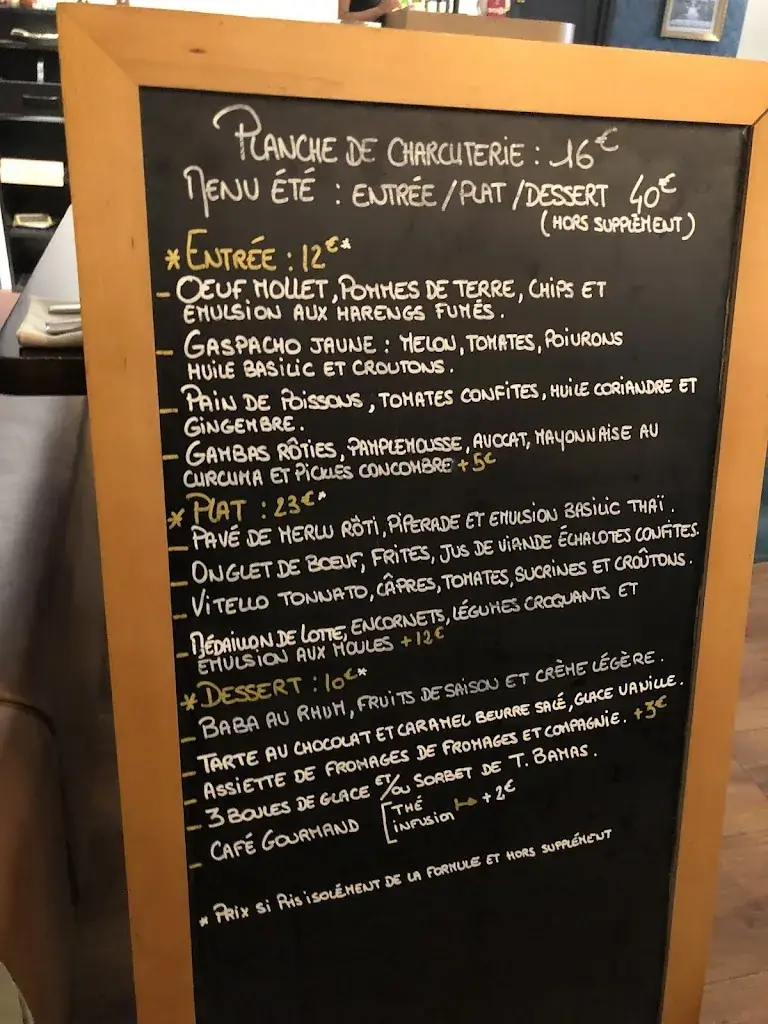 PLANCHE DE CHARCUTERIE : 16€
MENU ÉTÉ : ENTRÉE / PLAT / DESSERT 40€
(HORS SUPPLÈMENT)
* ENTRÉE : 12€*
- OEUF MOLLET, POMMES DE TERRE, CHIPS ET
EMULSION AUX HARENGS FUMÉS.
- GASPACHO JAUNE : MELON, TOMATES, POIURONS
HUILE BASILIC ET CROUTONS.
- PAIN DE POISSONS, TOMATES CONFITES, HUILE CORIANDRE ET
GINGEMBRE.
- GAMBAS RÔTIES, PAMPLEMOUSSE, AVOCAT, MAYONNAISE AU
CURCUMA ET PICKLES CONCOMBRE +5€
* PLAT : 23€*
- PAVÉ DE MERLU RÔTI, PIPERADE ET EMULSION BASILIC THAÏ.
- ONGLET DE BOEUF, FRITES, JUS DE VIANDE ÉCHALOTES CONFITES.
- VITELLO TONNATO, CÂPRES, TOMATES, SUCRINES ET CROÛTONS.
- MÉDAILLON DE LOTTE, ENCORNETS, LÉGUMES CROQUANTS ET
EMULSION AUX MOULES +12€
* DESSERT : 10€*
- BABA AU RHUM, FRUITS DE SAISON ET CRÈME LÉGÈRE.
- TARTE AU CHOCOLAT ET CARAMEL BEURRE SALÉ, GLACE VANILLE.
- ASSIETTE DE FROMAGES DE FROMAGES ET COMPAGNIE. +3€
- 3 BOULES DE GLACE ET/OU SORBET DE T. BAMAS.
- CAFÉ GOURMAND [THÉ
INFUSION → +2€
* PRIX SI PRIS ISOLÉMENT DE LA FORMULE ET HORS SUPPLÉMENT